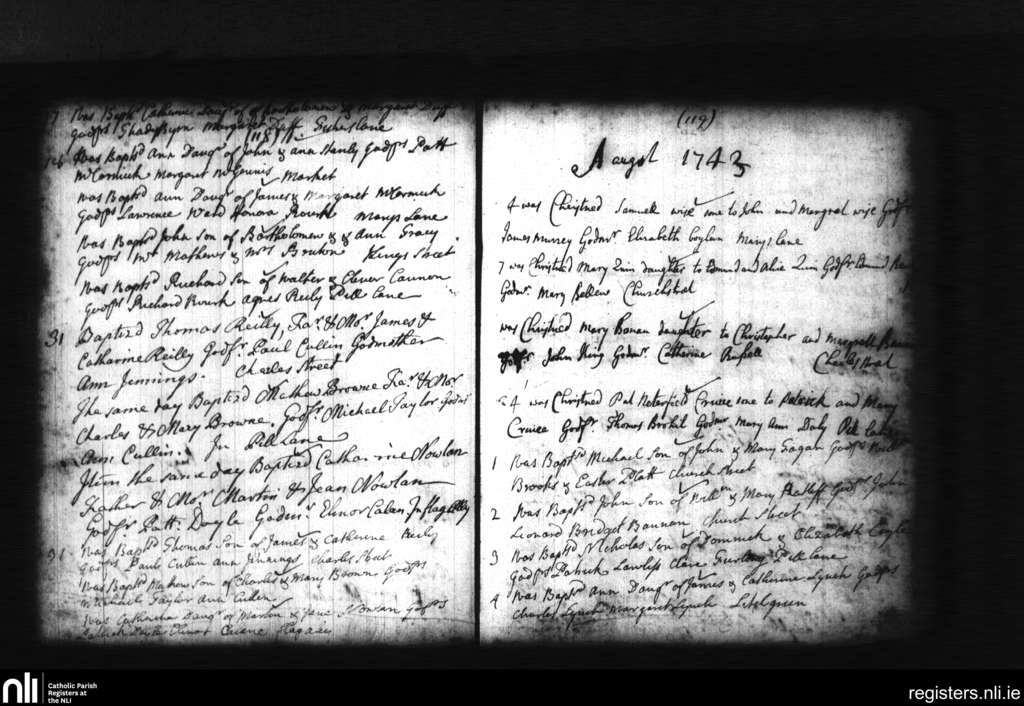 7 Was Bapt: Catherine Daugr of Bartholomew & Margaret Duff
Godfrs Margaret Duff
(118)
Was Baptsd Ann Daugr of John & Ann Hanly Godfrs Patt
McCormuck Margaret McGennis Market
Was Baptsd Ann Daugr of James & Margaret McCormuck
Godfrs Lawrence Ward Honora Rourk Marys Lane
Was Baptsd John Son of Bartholomew & Ann Gracy
Godfrs Mr Mathews & Mrs Bruton Kings Street
Was Baptsd Richard Son of Walter & Elenor Cannon
Godfrs Richard Rourk Agnes Reily Pill Lane
31 Baptizd Thomas Reilly, Far. & Mor. James &
Catharine Reilly Godfr. Paul Cullin Godmother
Ann Jennings. Charles Street
The same day Baptizd Mathew Browne Far. & Mor
Charles & Mary Browne. Godfr. Michael Taylor Godmr
Ann Cullin. In Pill Lane
Item the same day Baptizd Catharine Nowlan
Father & Mor Martin & Jean Nowlan
Godfr Patt: Doyle Godmr. Elinor
31 Was Baptsd Thomas Son of James & Catherine Reily
Godfrs Paul Culen Ann Jenings Charles Street
Was Baptsd Mathew Son of Charles & Mary Browne Godfrs
Michael Taylor Ann Culen
Was Catherine Daugr of Martin & Jane Nowlan Godfrs
(119)
August 1743
4 was Christned Samuell wise sone to John and Margret wise Godfr
James Murrey Godmr. Elizabeth Marys lane
7 was Christned Mary Quin daughter to Edmund and Alice Quin Godfr Edmund
Godmr. Mary Bellew Churchstret
was Christned Mary Ronan daughter to Christopher and Margrett
Godfr John King Godmr. Catherine Russell Charles Street
24 was Christned Pat Neterfield Cruice sone to Patrick and Mary
Cruice Godfr. Thomas Godmr Mary Ann Daly Pill lane
1 Was Baptsd Michael Son of John & Mary Fagan Godfrs
Brooks & Easter Platt Church Street
2 Was Baptsd John Son of Willm & Mary Godfrs John
Leonard Bridget Bannon Church Street
3 Was Baptsd Nicholas Son of Dominick & Elizabeth
Godfrs Patrick Lawless Clare Pill lane
4 Was Baptsd Ann Daugr of James & Catherine Lynch Godfrs
Charles Lynch Margaret Lynch Litelgreen
nli
Catholic Parish
Registers at
the NLI
registers.nli.ie